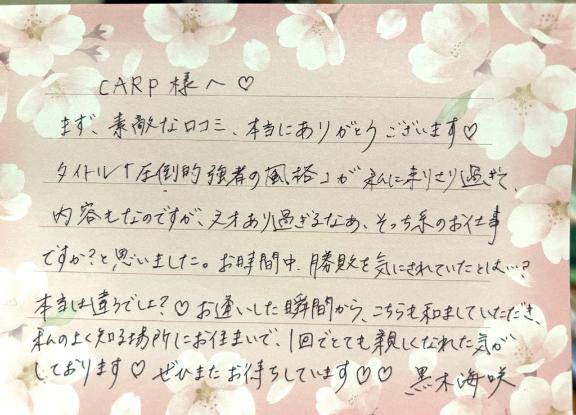 CARP様へ♡
まず、素敵な口コミ、本当にありがとうございます♡
タイトル「圧倒的強者の風格」が私に刺さり過ぎて、
内容もなのですが、文才あり過ぎるなあ、そっち系のお仕事
ですか?と思いました。お時間中、勝敗を気にされていたとは…?
本当は違うでしょ?♡お逢いした瞬間から、こちらも和ませていただき、
私のよく知る場所にお住まいで、1回でとても親しくなれた気が
しております♡ ぜひまたお待ちしています♡♡ 黒木海咲